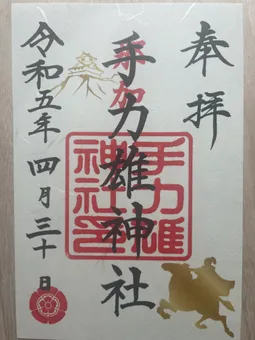 奉拝
手力雄神社
那加
手力雄
神社印
令和五年 四月三十日